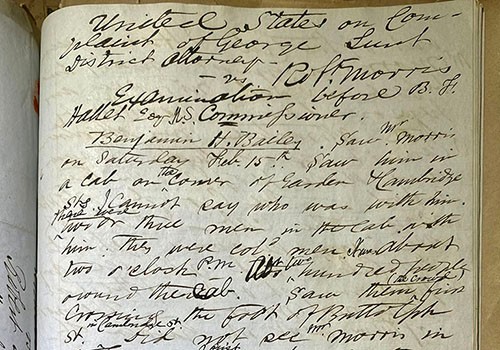 United States on Com-
plaint of George Lunt
District Attorney
— vs. Robt. Morris
Examination before B. F.
Hallet Esq U.S. Commissioner.
Benjamin H. Bailey. Saw Mr Morris
on Saturday Feb 15th Saw him in
a cab on the corner of Garden & Cambridge
Sts I cannot say who was with him.
there were
two or three men in the cab with
him. they were cold men. About
two o'clock P.M. hundred people
around the cab. Saw them first
the crowd
crossing the foot of
St. in Cambridge St. Did not see Mr Morris in